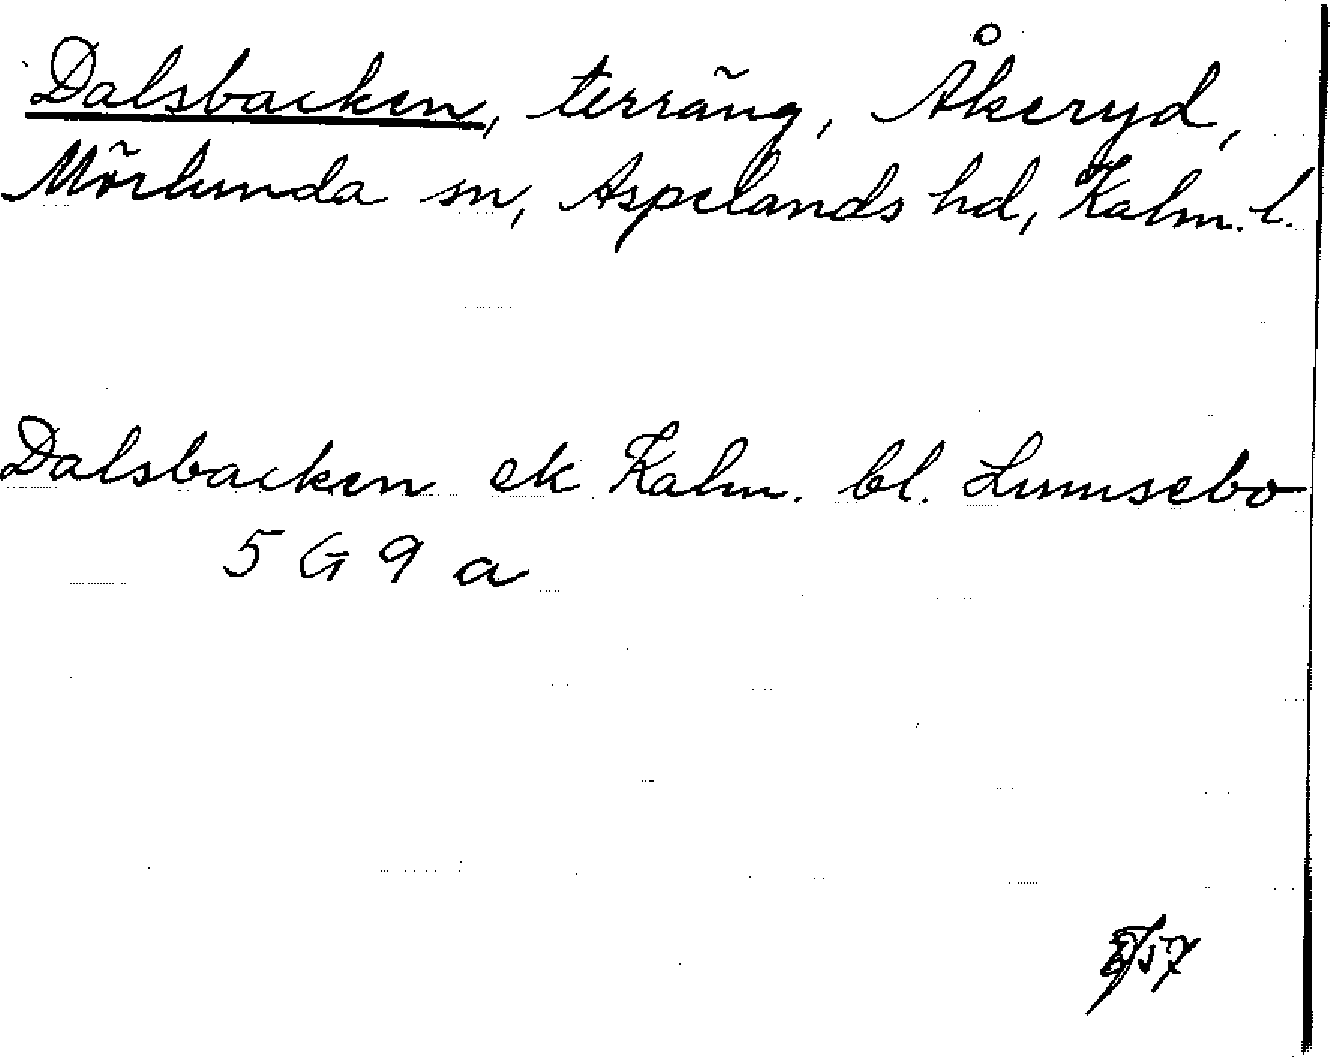 Dalsbacken, terräng, Åkeryd,
Mörlunda sn, Aspelands hd, Kalm. l.
Dalsbacken ek Kalm. bl. Lunnsebo
5 G 9 a